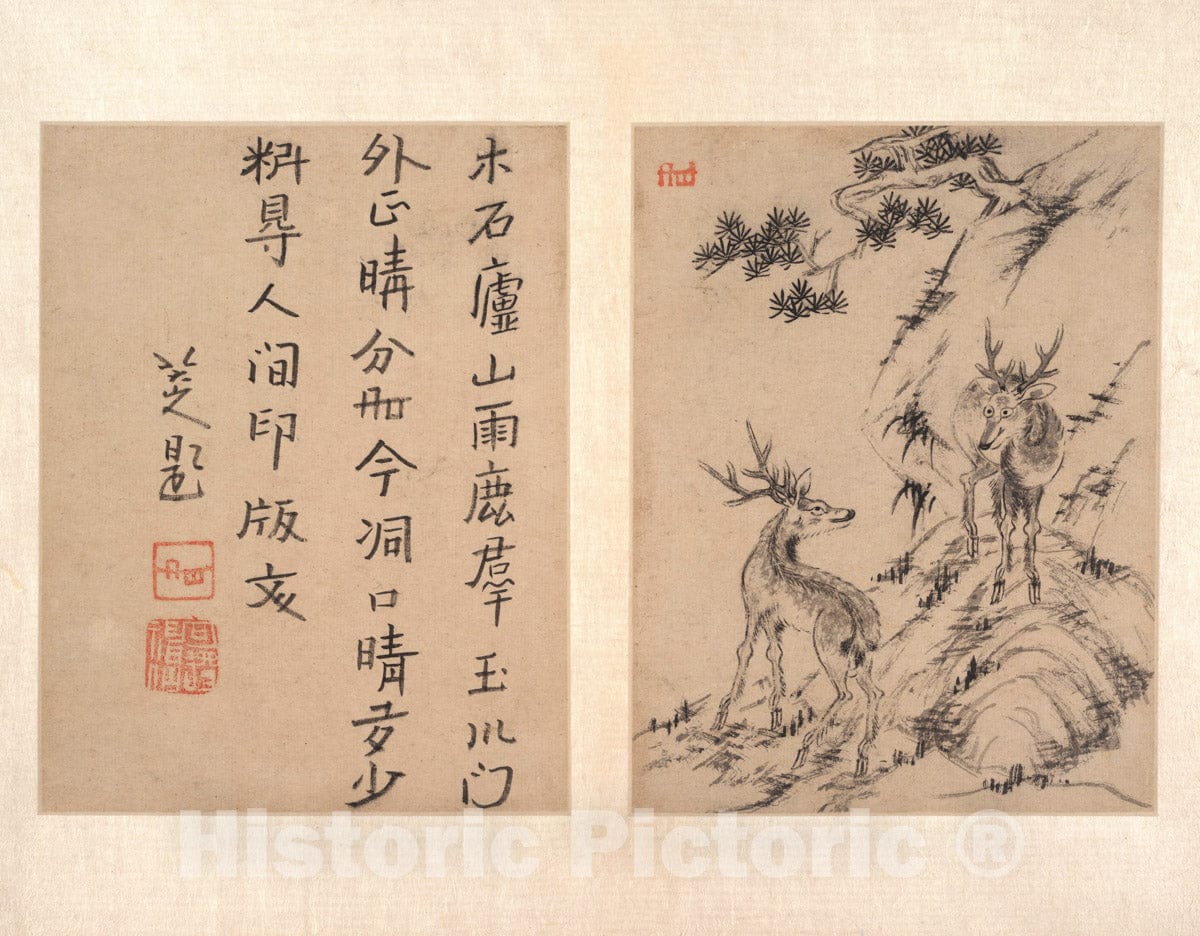 木石廬山雨鹿羣玉川门
外正晴分今洞口晴多少
尋人间印版
題
Historic Pictoric ®